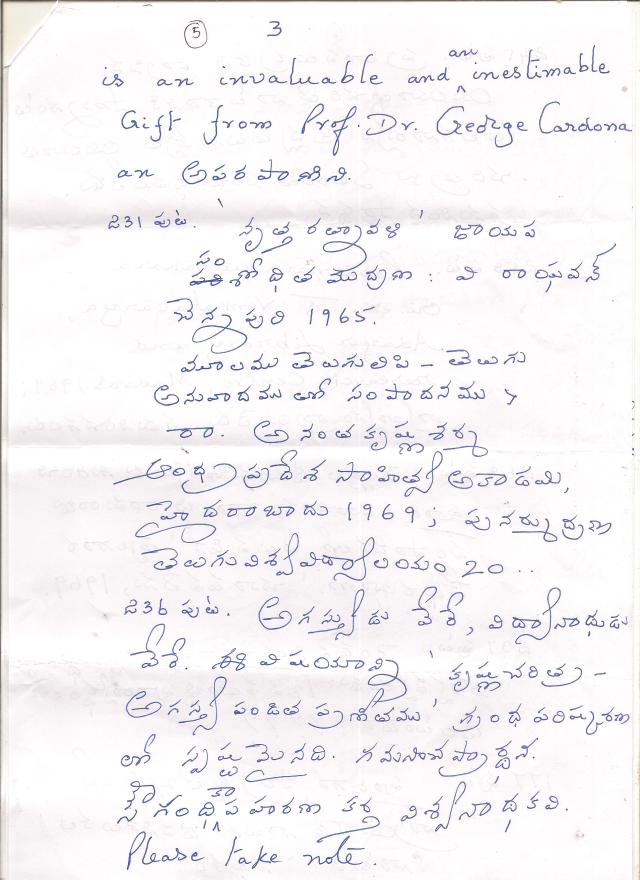 5 3
is an invaluable and an inestimable
Gift from Prof. Dr. George Cardona
an అపర పాణిని.
231 పుట. 'నృత్త రత్నావళి' జాయప
సంశోధిత ముద్రణ : వి రాఘవన్
చెన్నపురి 1965.
మూలము తెలుగులిపి - తెలుగు
అనువాదములో సంపాదనము
రా. అనంతకృష్ణ శర్మ
ఆంధ్రప్రదేశ సాహిత్య అకాడమి,
హైదరాబాదు 1969; పునర్ముద్రణ
తెలుగు విశ్వవిద్యాలయం 20 ..
236 పుట. అగస్త్యుడు వేరే, విద్యానాథుడు
వేరే. ఈ విషయాన్ని 'కృష్ణచరిత్ర -
అగస్త్య పండిత ప్రణీతము' గ్రంథ పరిష్కరణ
లో స్పష్టమైనది. గమనింప ప్రార్థన.
సౌగంధికాపహరణ కర్త విశ్వనాథకవి.
Please take note.